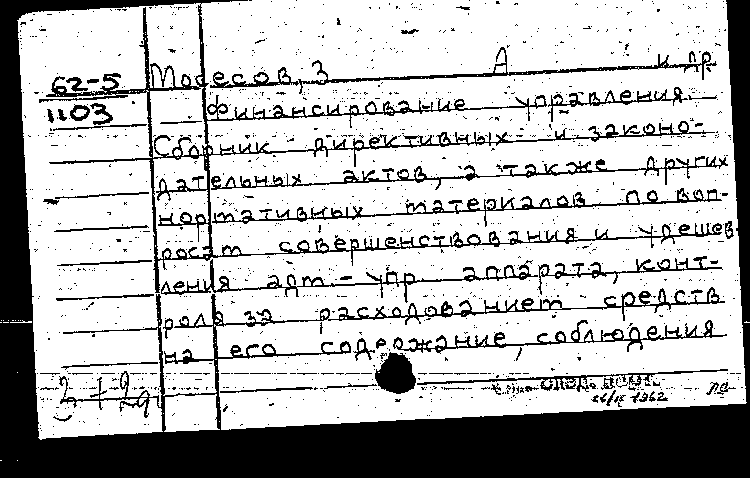 62-5 Мосесов, З А и др
1103 Финансирование управления.
Сборник директивных и законо-
дательных актов, а также других
нормативных материалов по воп-
росам совершенствования и удешев-
ления адм.-упр. аппарата, конт-
роля за расходованием средств
на его содержание, соблюдения
3 + 2д
1962